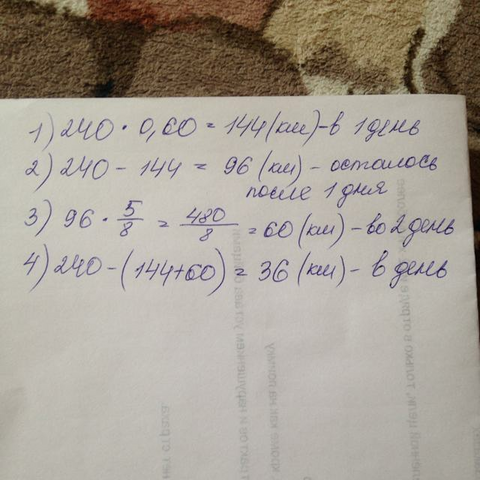 1) 240 · 0,60 = 144 (км) - в 1 день
2) 240 - 144 = 96 (км) - осталось
после 1 дня
3) 96 · 5/8 = 480/8 = 60 (км) - во 2 день
4) 240 - (144+60) = 36 (км) - в день